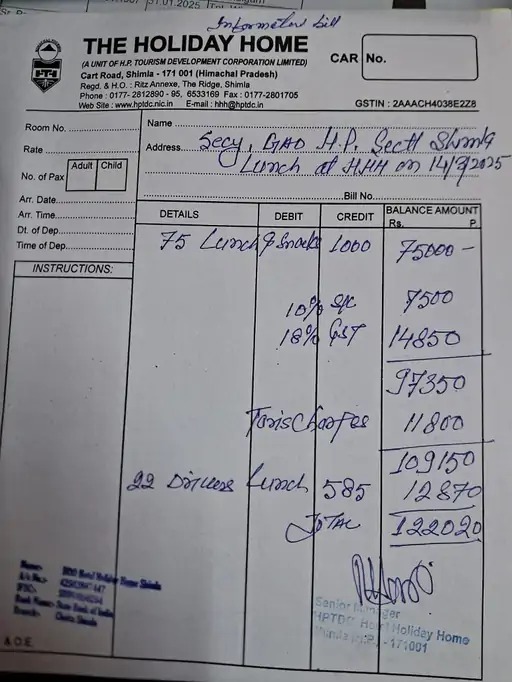 31.01.2025
Information bill
THE HOLIDAY HOME
(A UNIT OF H.P. TOURISM DEVELOPMENT CORPORATION LIMITED)
Cart Road, Shimla - 171 001 (Himachal Pradesh)
Regd. & H.O. : Ritz Annexe, The Ridge, Shimla
Phone : 0177- 2812890 - 95, 6533169 Fax : 0177-2801705
Web Site : www.hptdc.nic.in E-mail : hhh@hptdc.in
CAR No.
GSTIN : 2AAACH4038E2Z8
Room No.
Name
Secy, GAD H.P. Sectt Shimla
Rate
Address
Lunch at HHH on 14/3/2025
Adult Child
No. of Pax
Bill No.
Arr. Date
Arr. Time
Dt. of Dep.
Time of Dep.
DETAILS DEBIT CREDIT BALANCE AMOUNT
Rs. P.
75 Lunch & Snacks 1000 75000 -
INSTRUCTIONS:
10% S/c 7500
18% GST 14850
97350
Charges 11800
109150
22 Drivers Lunch 585 12870
TOTAL 122020
Name:
Hotel Holiday Home Shimla
A/c No.:
IFSC:
Bank Name: State Bank of India
Branch:
Senior Manager
HPTDC Hotel Holiday Home
Shimla (H.P.) - 171001
& O.E.